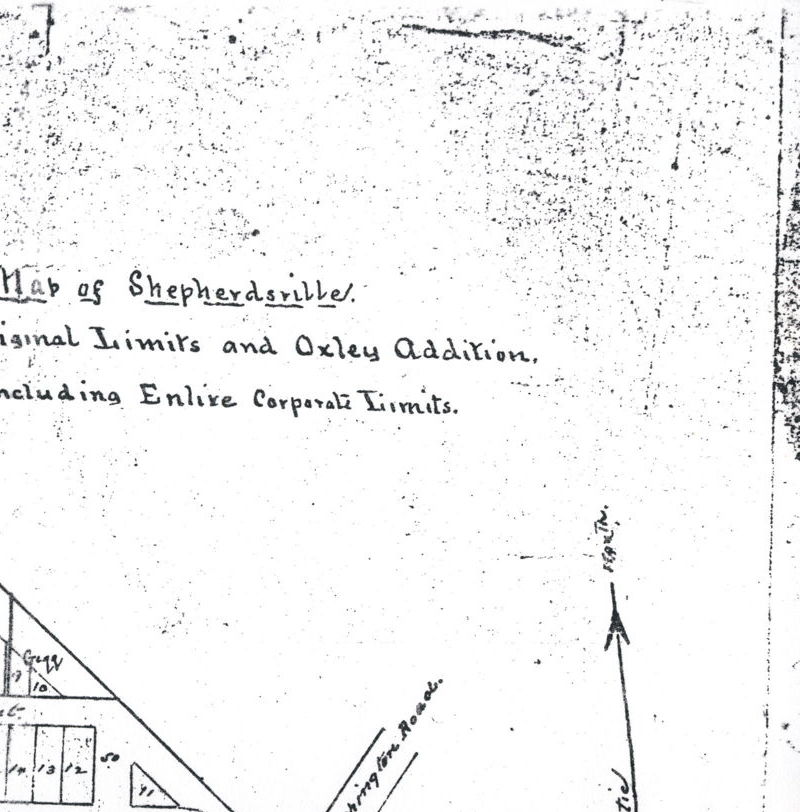 Map of Shepherdsville.
iginal Limits and Oxley Addition.
ncluding Entire Corporate Limits.
North.
Gegg
10
hington Road.
14 13 12
50
11
tic